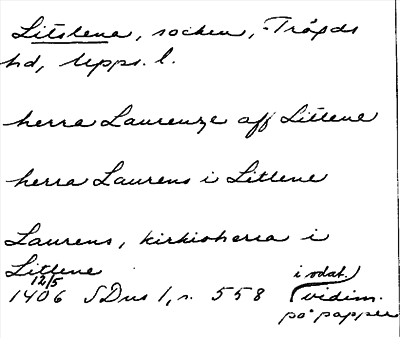 Litslena, socken, Trögds
hd, Upps. l.
herra Laurenze aff Litlene
herra Laurens i Litlene
Laurens, kirkioherra i
Litlene
12/5
1406 SDns 1, s. 558 (vidim.
i odat.)
på papper